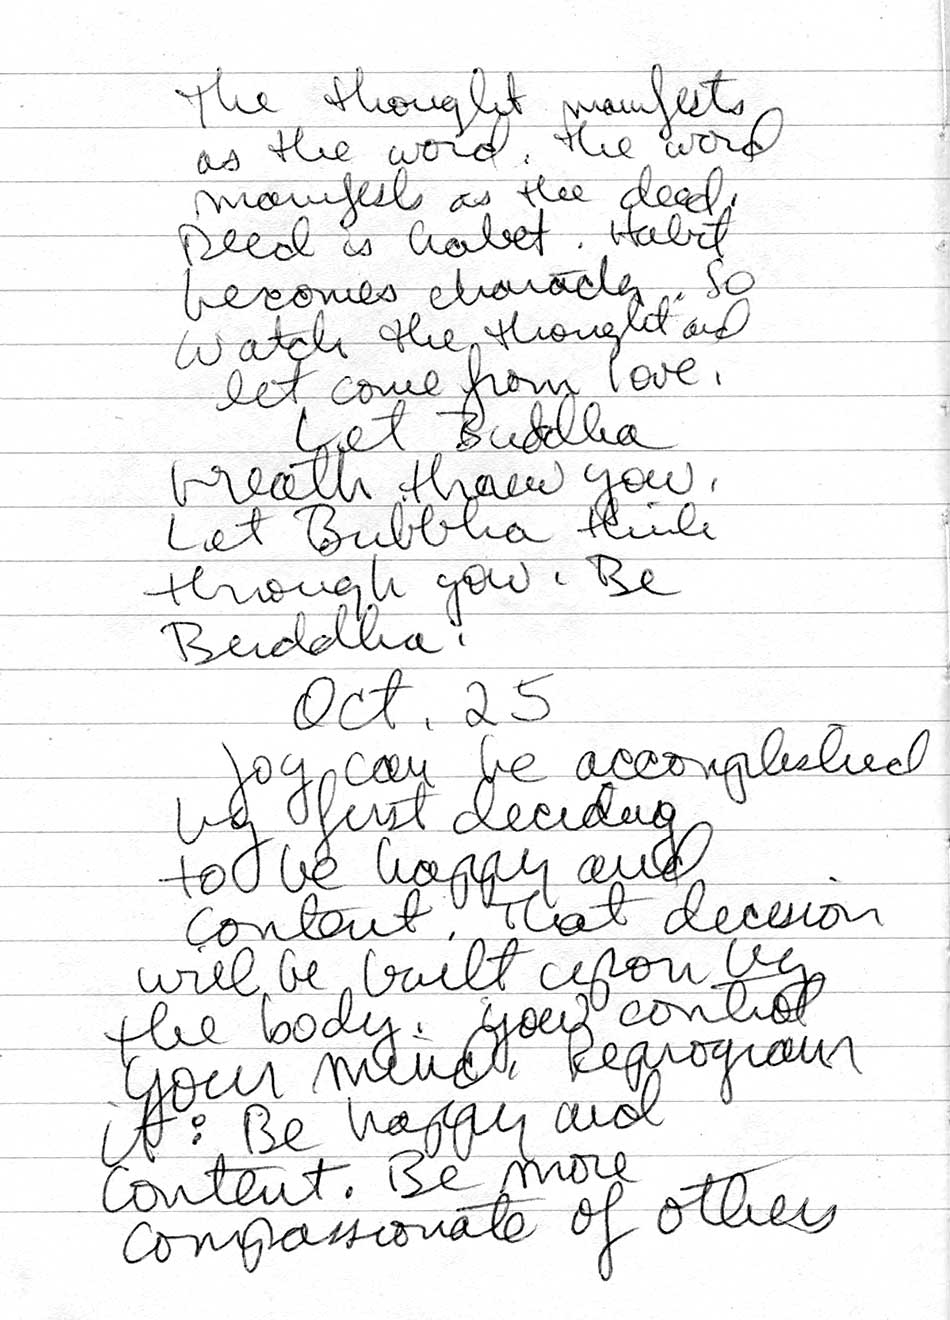 The thought manifests
as the word. The word
manifests as the deed.
Deed is habet. Habit
becomes character. So
Watch the thought and
let come from love.
Let Buddha
breath threw you.
Let Bubbha think
through you. Be
Buddha.
Oct. 25
Joy can be accomplished
by first deciding
to be happy and
Content. That decision
will be built upon by
the body. You control
your mind. Reprogram
it: Be happy and
Content. Be more
Compassionate of others